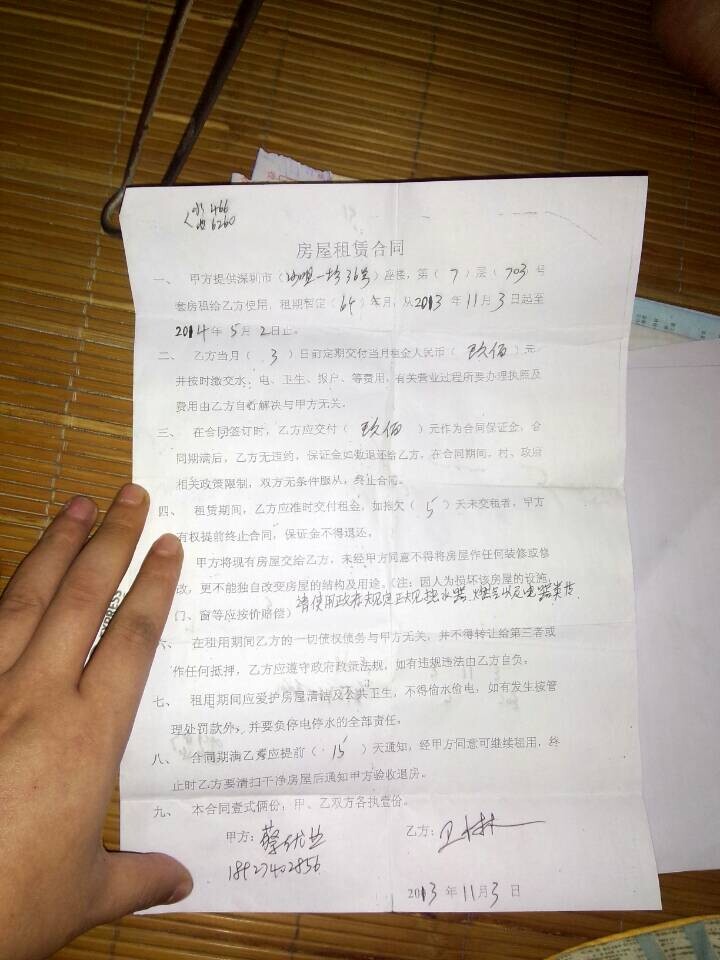 水466
电6260
房屋租赁合同
一、 甲方提供深圳市（ 36号）座接，第（7）层（703）号
套房租给乙方使用，租期暂定（6个）个月，从2013年11月3日起至
2014年5月2日止。
二、 乙方当月（3）日前定期交付当月租金人民币（玖佰）元
并按时缴交水、电、卫生、报户、等费用，有关营业过程所要办理执照及
费用由乙方自行解决与甲方无关。
三、 在合同签订时，乙方应交付（玖佰）元作为合同保证金，合
同期满后，乙方无违约，保证金如数退还给乙方，在合同期间，村、政府
相关政策限制，双方无条件服从，终止合同。
四、 租赁期间，乙方应准时交付租金，如拖欠（5）天未交租者，甲方
有权提前终止合同，保证金不得退还。
甲方将现有房屋交给乙方，未经甲方同意不得将房屋作任何装修或修
改，更不能独自改变房屋的结构及用途。（注：因人为损坏该房屋的设施，
门、窗等应按价赔偿）请使用政府规定正规热水器、燃气以及电器类等
六、 在租用期间乙方的一切债权债务与甲方无关，并不得转让给第三者或
作任何抵押，乙方应遵守政府政策法规，如有违规违法由乙方自负。
七、 租用期间应爱护房屋清洁及公共卫生，不得偷水偷电，如有发生按管
理处罚款外，并要负停电停水的全部责任。
八、 合同期满乙方应提前（15）天通知，经甲方同意可继续租用，终
止时乙方要请扫干净房屋后通知甲方验收退房。
九、 本合同壹式俩份，甲、乙双方各执壹份。
甲方：蔡 乙方：卫林
18927402856
2013年11月3日